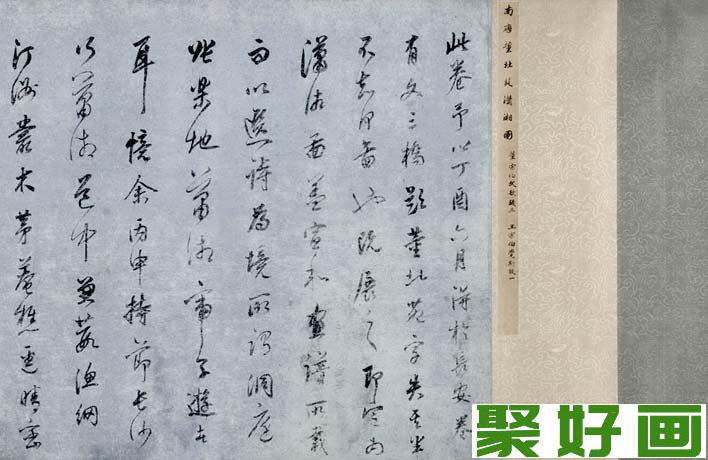 南唐董北苑瀟湘圖
董宗伯跋三 王宗伯覺斯跋一
此卷予以丁酉六月得於長安卷
有文三橋題董北苑字失其半
不知何圖也既展之即定為
瀟湘圖蓋宣和畫譜所載
而以選詩為境所謂洞庭
張樂地瀟湘帝子遊者
耳憶余丙申持節長沙
行瀟湘道中蒹葭漁網
汀洲叢木茅菴樵徑晴巒
聚好画